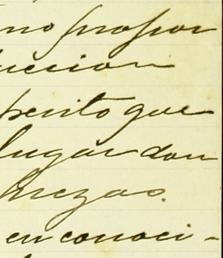 no propor
uccion
perito que
lugar don
hezas.
en conoci-